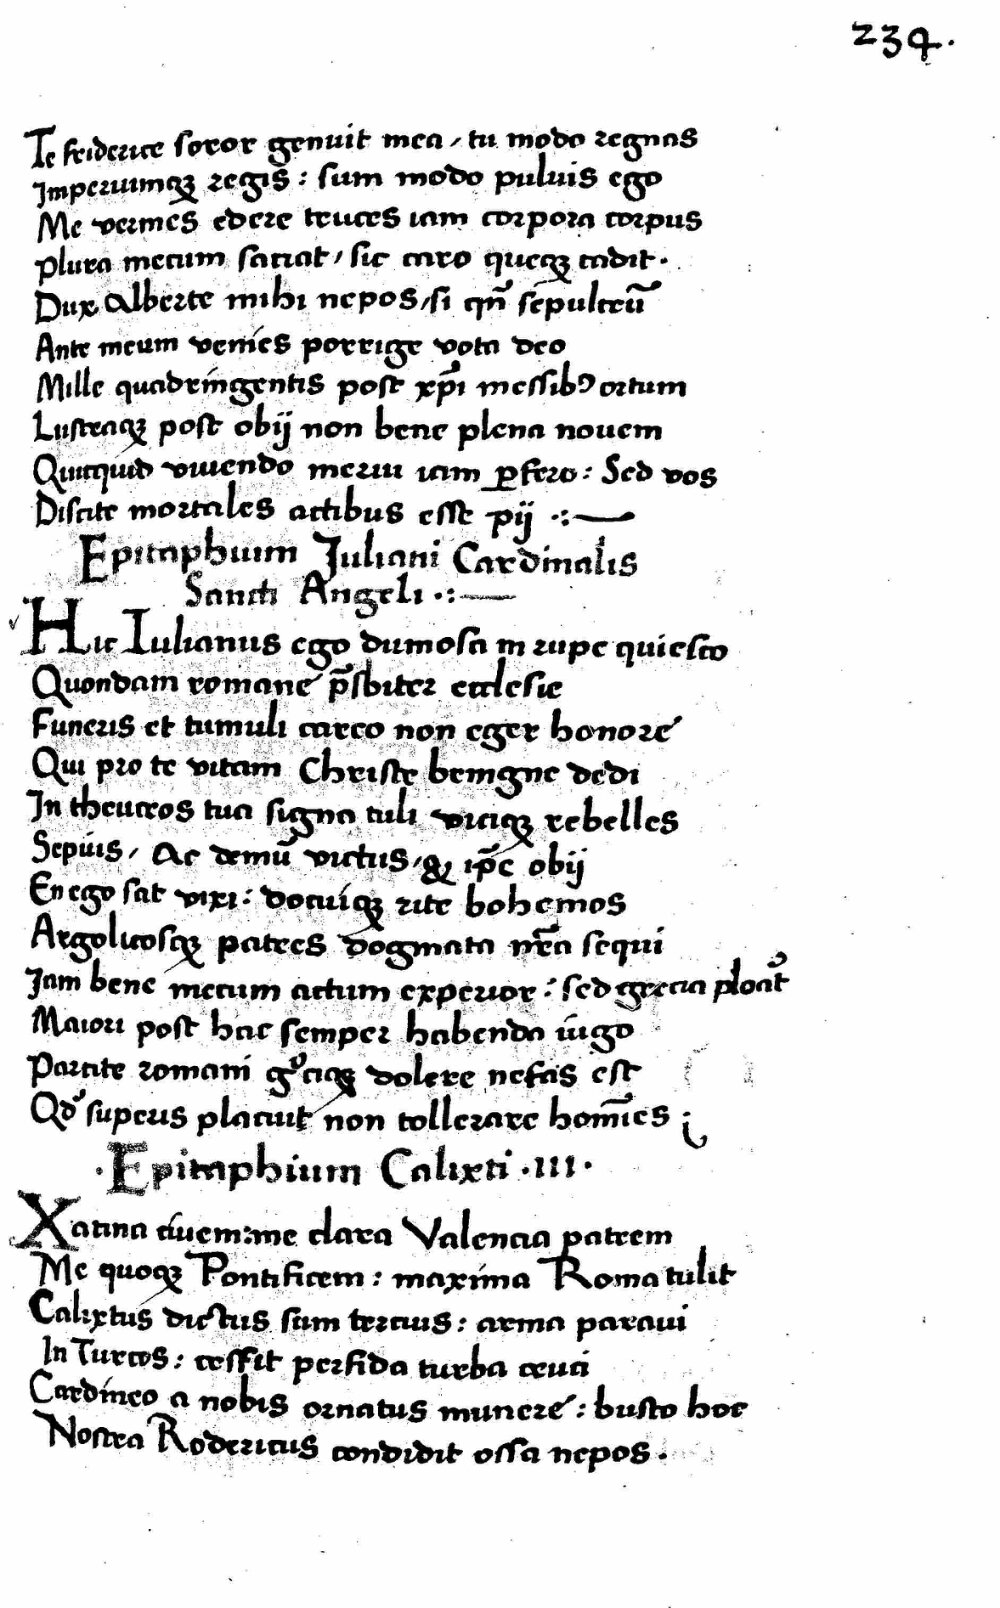 234.
Te friderice soror genuit mea / tu modo regnas
Imperiumqꝫ regis : sum modo puluis ego
Me vermes edere truces iam corpora corpus
Plura mecum saciat / sic caro queqꝫ cadit .
Dux Alberte mihi nepos / si qn̄ sepulcrū
Ante meum venies porrige vota deo
Mille quadringentis post xp̄i messibꝰ ortum
Lustraqꝫ post obij non bene plena nouem
Quicquid viuendo merui iam ꝑfero : Sed vos
Discite mortales actibus esse pij .:—
Epitaphium Juliani Cardinalis
Sancti Angeli .:—
Hic Iulianus ego dumosa in rupe quiesco
Quondam romane p̄sbiter ecclesie
Funeris et tumuli careo non eger honore
Qui pro te vitam Christe benigne dedi
In theucros tua signa tuli viciqꝫ rebelles
Sepius / Ac demū victus / & ip̄e obij
En ego sat vixi : docuiqꝫ rite bohemos
Argolicosqꝫ patres dogmata nr̄a sequi
Iam bene mecum actum experior : sed grecia ploat᷑
Maiori post hac semper habenda iugo
Parcite romani gͦciaqꝫ dolere nefas est
Qdͦ superis placuit non tollerare homīes ;
. Epitaphium Calixti . III .
Xatina ciuem : me clara Valencia patrem
Me quoqꝫ Pontificem : maxima Roma tulit
Calixtus dictus sum tercius : arma paraui
In Turcos : cessit perfida turba cruci
Cardineo a nobis ornatus munere : busto hoc
Nostra Rodericus condidit ossa nepos .